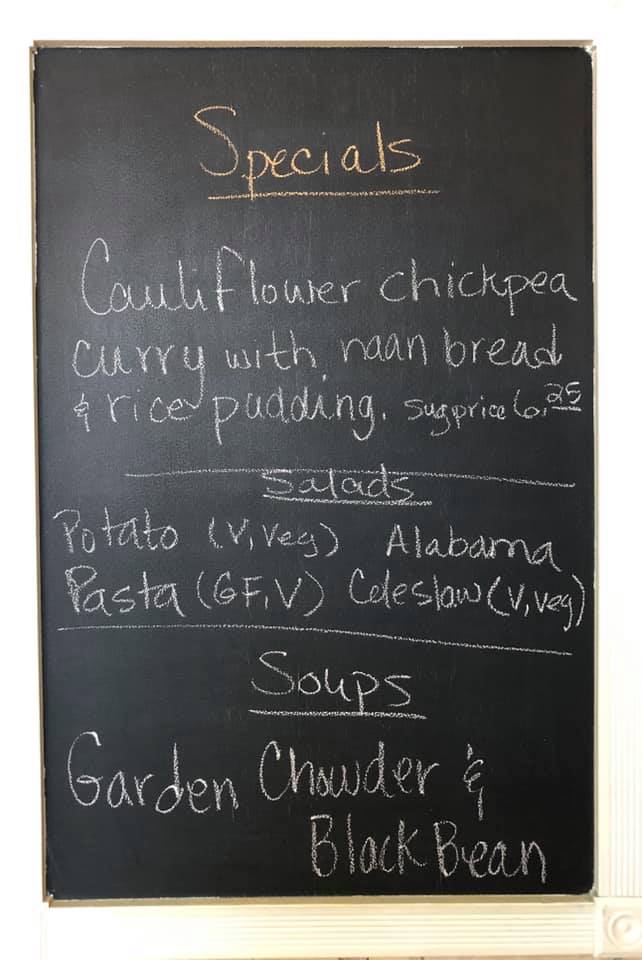 Specials
Cauliflower chickpea
curry with naan bread
& rice pudding. sug price 6.25
Salads
Potato (V, Veg) Alabama
Pasta (GF, V) Coleslaw (V, veg)
Soups
Garden Chowder &
Black Bean